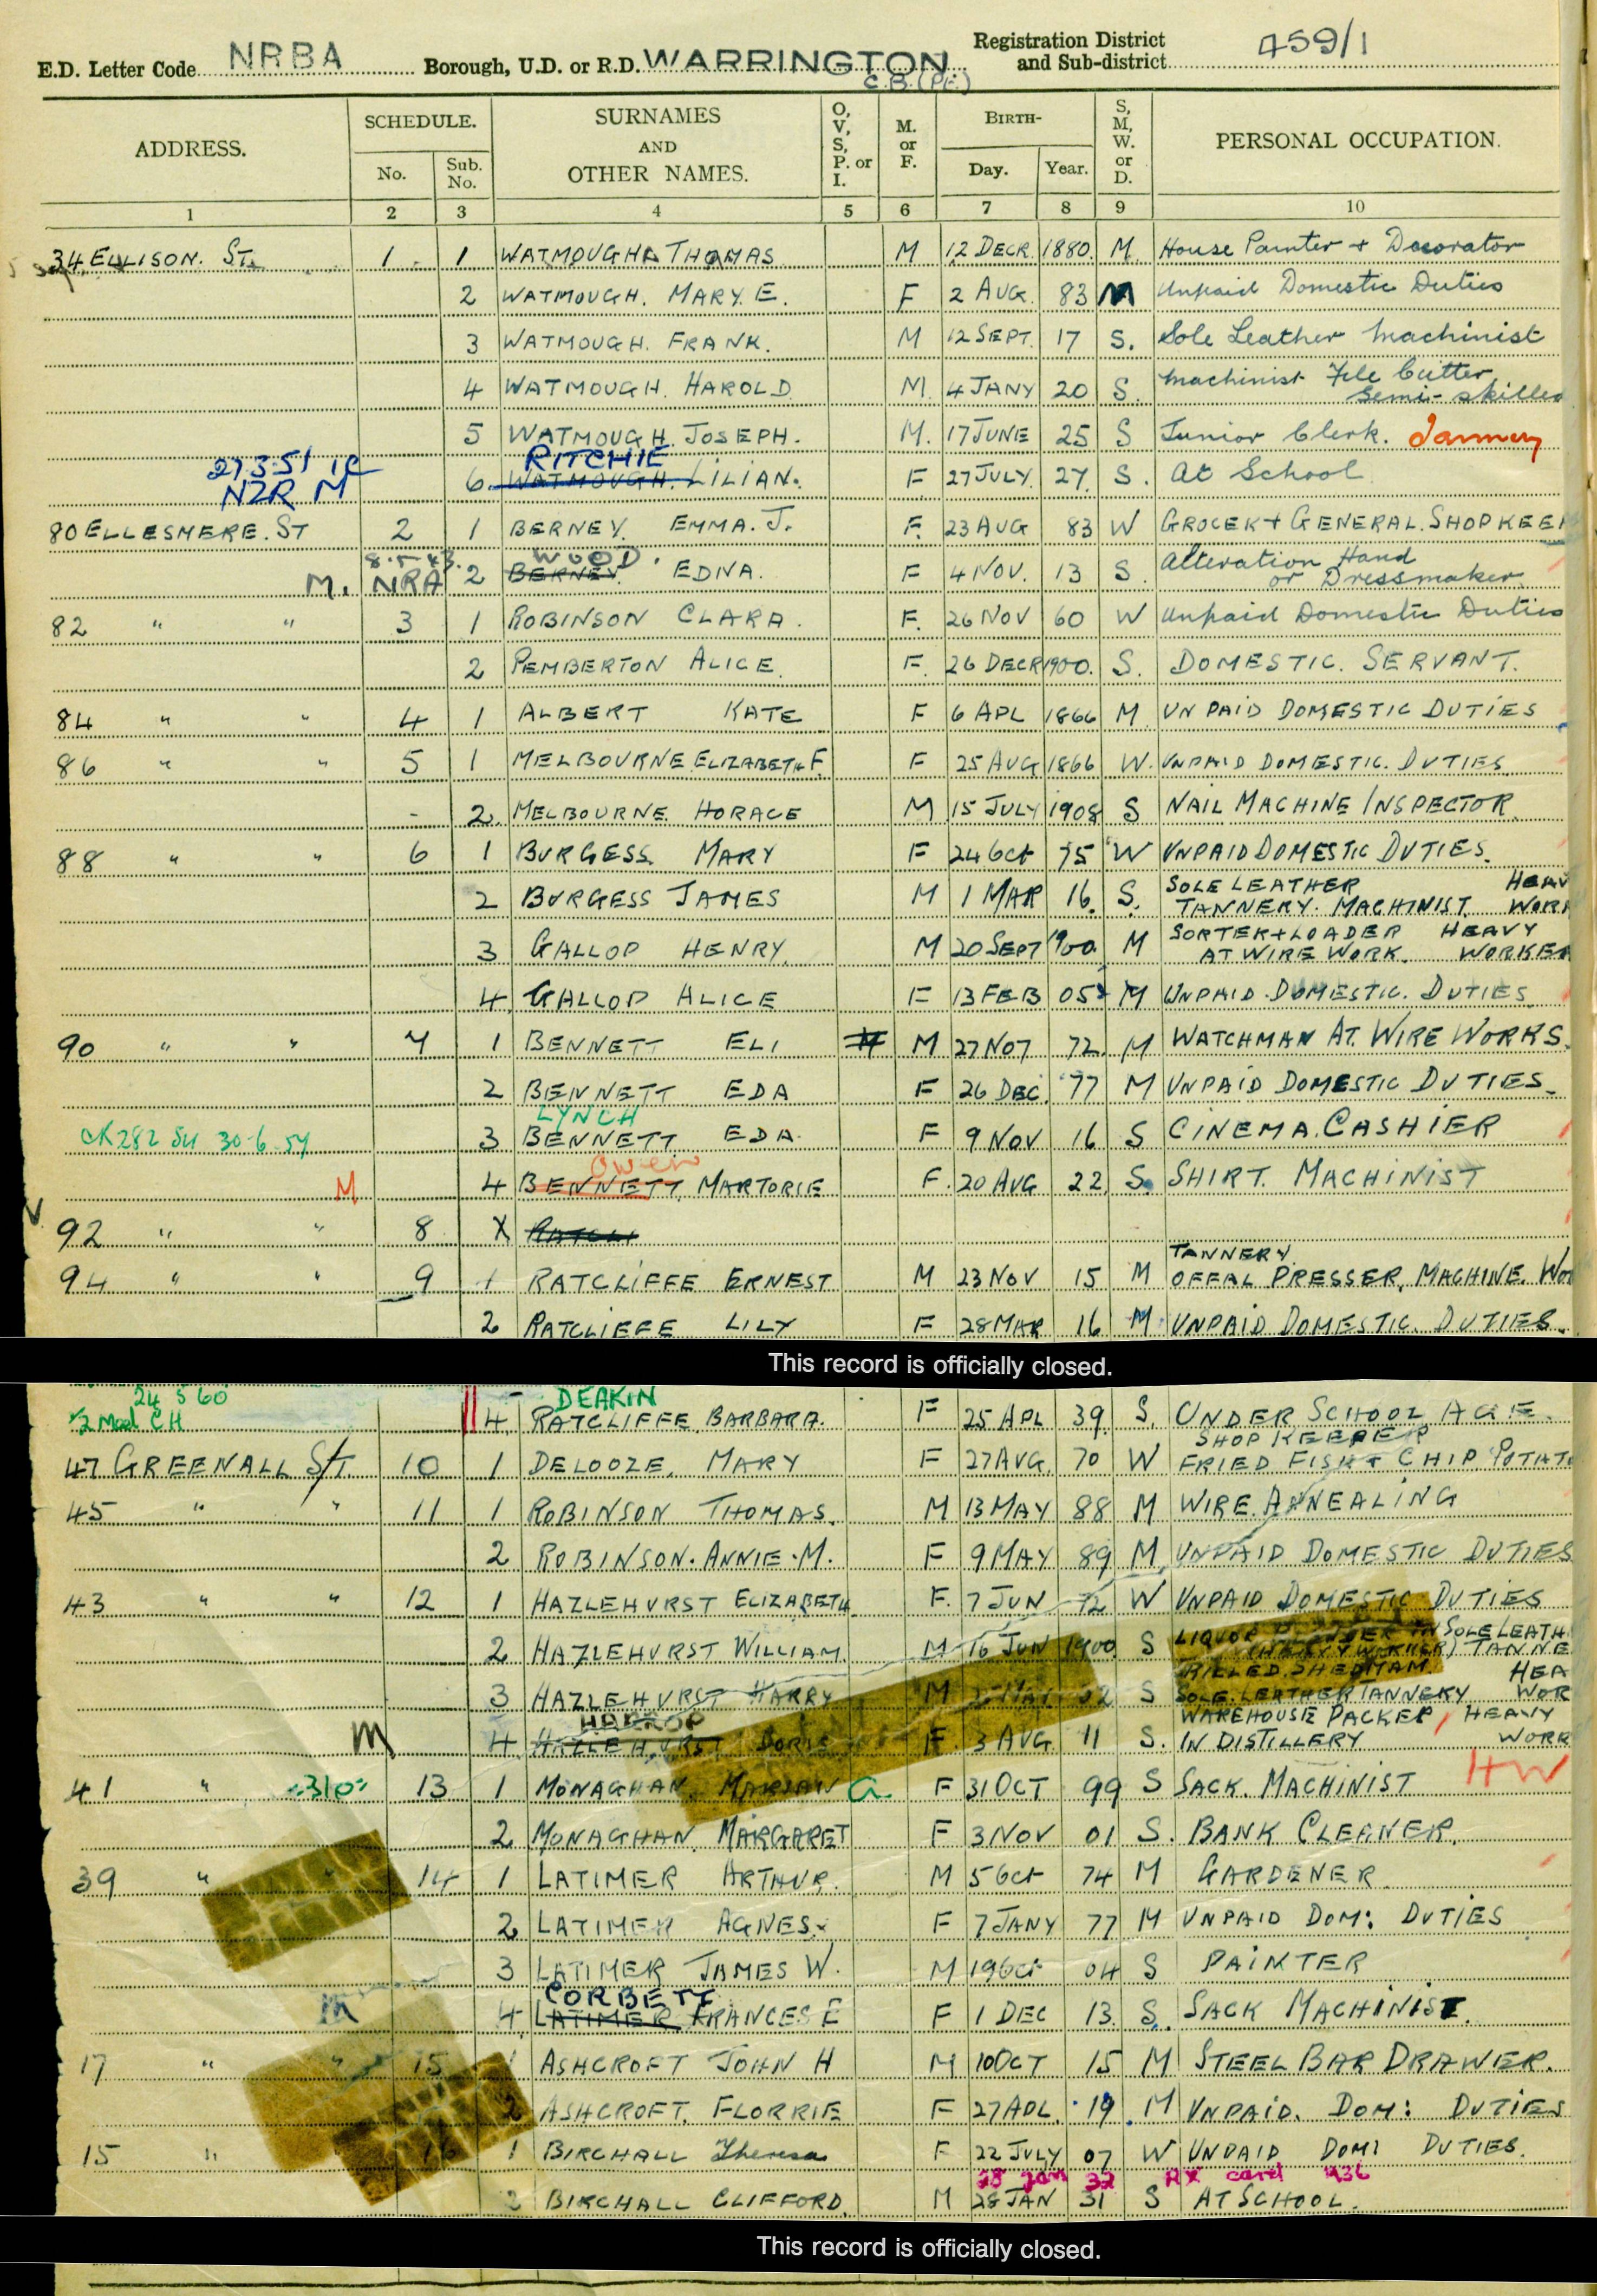 E.D. Letter Code NRBA Borough, U.D. or R.D. WARRINGTON C.B. Registration District and Sub-district 459/1
ADDRESS. SCHEDULE. No. Sub. No. SURNAMES AND OTHER NAMES. O, V, S, P. or I. M. or F. BIRTH- Day. Year. S, M, W. or D. PERSONAL OCCUPATION.
1 2 3 4 5 6 7 8 9 10
34 ELLISON. ST. 1 1 WATMOUGH THOMAS M 12 DECR. 1880. M. House Painter + Decorator
2 WATMOUGH. MARY. E. F 2 AUG. 83 M Unpaid Domestic Duties
3 WATMOUGH. FRANK. M 12 SEPT. 17 S. Sole Leather Machinist
4 WATMOUGH. HAROLD M. 4 JANY 20 S. Machinist File Cutter Semi-skilled
5 WATMOUGH. JOSEPH. M. 17 JUNE 25 S Junior Clerk.
27.3.51 NZR M RITCHIE
6. WATMOUGH. LILIAN. F 27 JULY. 27. S. At School
80 ELLESMERE. ST 2 1 BERNEY. EMMA. J. F. 23 AUG 83 W GROCER + GENERAL. SHOPKEE
M. NRA WOOD
2 BERNEY. EDNA. F 4 NOV. 13 S. Alteration Hand or Dressmaker
82 " " 3 1 ROBINSON CLARA. F. 26 NOV 60 W Unpaid Domestic Duties
2 PEMBERTON ALICE. F. 26 DECR 1900. S. DOMESTIC. SERVANT.
84 " " 4 1 ALBERT KATE F 6 APL 1866 M UNPAID DOMESTIC DUTIES
86 " " 5 1 MELBOURNE. ELIZABETH F. F 25 AUG 1866 W. UNPAID DOMESTIC. DUTIES.
- 2. MELBOURNE. HORACE M 15 JULY 1908 S NAIL MACHINE INSPECTOR
88 " " 6 1 BURGESS. MARY F 24 Oct 75 W UNPAID DOMESTIC DUTIES.
2 BURGESS JAMES M 1 MAR 16. S. SOLE LEATHER TANNERY. MACHINIST HEAV WORK
3 GALLOP HENRY. M 20 SEPT 1900 M SORTER + LOADER AT WIRE WORK. HEAVY WORKER
4. GALLOP ALICE F 13 FEB 05 M UNPAID. DOMESTIC. DUTIES
90 " " 7 1 BENNETT ELI M 27 NOV 72. M WATCHMAN AT. WIRE WORKS.
2 BENNETT EDA F 26 DEC. 77 M UNPAID DOMESTIC DUTIES.
LYNCH
CK 282 30-6-54 3 BENNETT EDA. F 9 NOV 16 S CINEMA. CASHIER
Owen
M 4 BENNETT. MARJORIE F. 20 AUG 22 S. SHIRT. MACHINIST
92 " " 8 X
94 " " 9 1 RATCLIFFE ERNEST M 23 NOV 15 M TANNERY. OFFAL PRESSER, MACHINE. Wo
2 RATCLIFFE LILY F 28 MAR 16 M UNPAID DOMESTIC. DUTIES.
This record is officially closed.
24 5 60 DEAKIN
CH 4. RATCLIFFE. BARBARA. F 25 APL 39. S. UNDER SCHOOL AGE.
47 GREENALL ST. 10 1 DELOOZE. MARY F 27 AUG. 70 W SHOP KEEPER FRIED FISH + CHIP. POTAT
45 " " 11 1 ROBINSON THOMAS. M 13 MAY 88 M WIRE. ANNEALING
2 ROBINSON. ANNIE. M. F 9 MAY 89 M UNPAID DOMESTIC DUTIES
43 " " 12 1 HAZLEHURST ELIZABETH F. 7 JUN 72 W UNPAID DOMESTIC DUTIES
2 HAZLEHURST WILLIAM M 16 JUN 1900 S LIQUOR IN SOLE LEATH (HEAVY WORKER) TANNE
3 HAZLEHURST HARRY M MAY 02 S SOLE. LEATHER TANNERY HEA WOR
M 4 HAZLEHURST DORIS F. 3 AUG 11 S. WAREHOUSE PACKER, IN DISTILLERY HEAVY WORK
41 " 13 1 MONAGHAN. MARIAN F 31 OCT 99 S SACK. MACHINIST HW
2 MONAGHAN. MARGARET F 3 NOV 01 S. BANK CLEANER.
39 " " 14 1 LATIMER ARTHUR. M 5 Oct 74 M GARDENER.
2 LATIMER AGNES. F 7 JANY 77 M UNPAID DOM: DUTIES
3 LATIMER JAMES W. M 19 Oct 04 S PAINTER
CORBETT
M 4. LATIMER FRANCES E F 1 DEC 13. S. SACK MACHINIST.
17 " " 15 1 ASHCROFT JOHN H M 10 OCT 15 M STEEL BAR DRAWER.
2 ASHCROFT. FLORRIE F 27 APL. 19 M UNPAID. DOM: DUTIES
15 " 16 1 BIRCHALL Theresa F 22 JULY 07 W UNPAID DOM: DUTIES.
28 Jan 32 RX card
2 BIRCHALL CLIFFORD. M 28 JAN 31 S AT SCHOOL.
This record is officially closed.